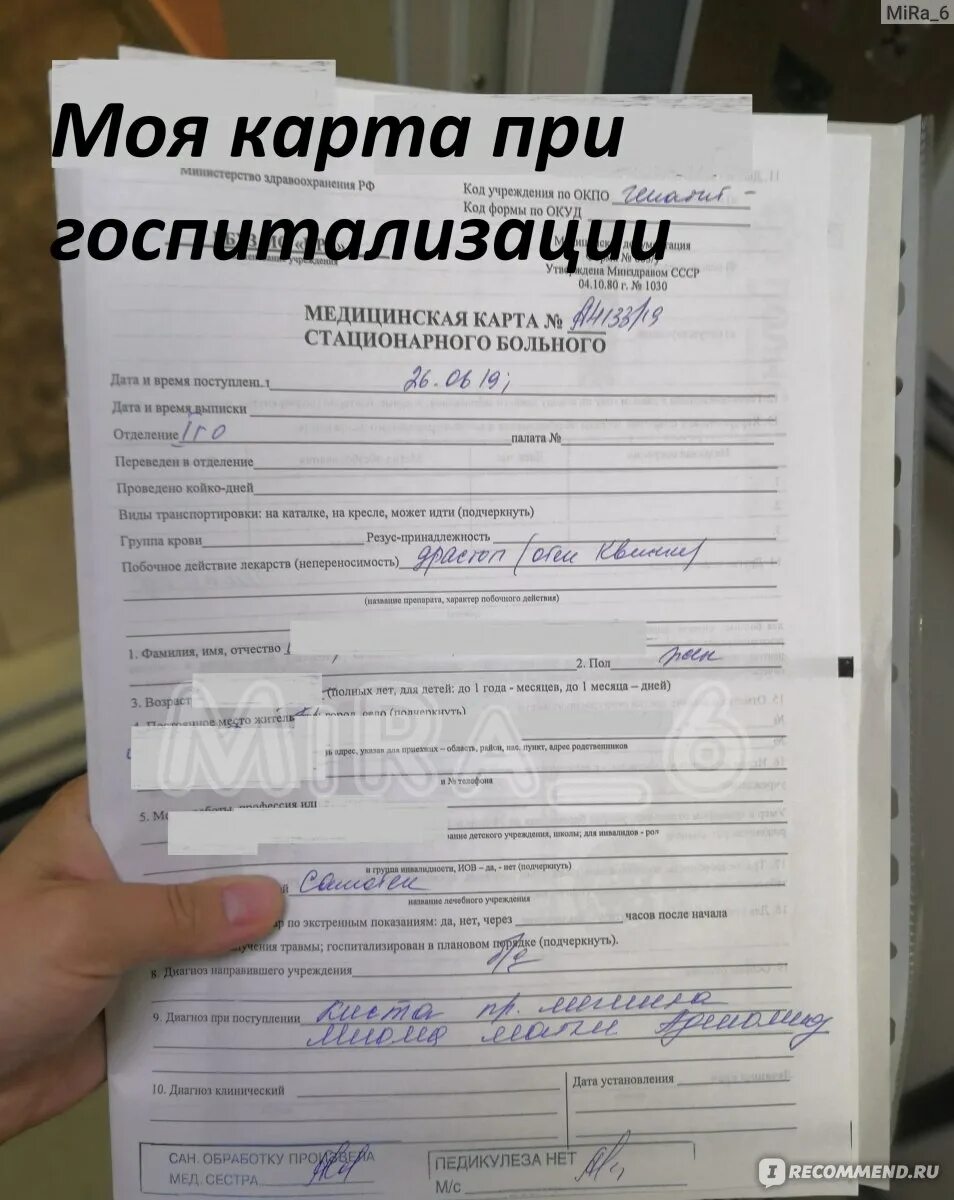 MiRa_6
Моя карта при
госпитализации
Министерство здравоохранения РФ
Код учреждения по ОКПО
Код формы по ОКУД
наименование учреждения
Медицинская документация
Утверждена Минздравом СССР
04.10.80 г. № 1030
МЕДИЦИНСКАЯ КАРТА № А4133/19
СТАЦИОНАРНОГО БОЛЬНОГО
Дата и время поступлен 26.06 19г
Дата и время выписки
Отделение ІГО палата №
Переведен в отделение
Проведено койко-дней
Виды транспортировки: на каталке, на кресле, может идти (подчеркнуть)
Группа крови Резус-принадлежность
Побочное действие лекарств (непереносимость) драстоп (отек Квинке)
(название препарата, характер побочного действия)
1. Фамилия, имя, отчество
2. Пол жен
3. Возраст (полных лет, для детей: до 1 года - месяцев, до 1 месяца – дней)
4. Постоянное место житель город, село (подчеркнуть)
MiRA_6
адрес, указав для приезжих – область, район, нас. пункт, адрес родственников
и № телефона
5. профессия или
детского учреждения, школы; для инвалидов - род
и группа инвалидности, ИОВ – да, - нет (подчеркнуть)
Самотек
название лечебного учреждения
по экстренным показаниям: да, нет, через часов после начала
лучения травмы; госпитализирован в плановом порядке (подчеркнуть).
8. Диагноз направившего учреждения
9. Диагноз при поступлении Киста пр. яичника
Миома матки Аденомиоз
10. Диагноз клинический
Дата установления
САН. ОБРАБОТКУ ПРОИЗВЕЛА
МЕД. СЕСТРА
ПЕДИКУЛЕЗА НЕТ
М/с
IRECOMMEND.RU